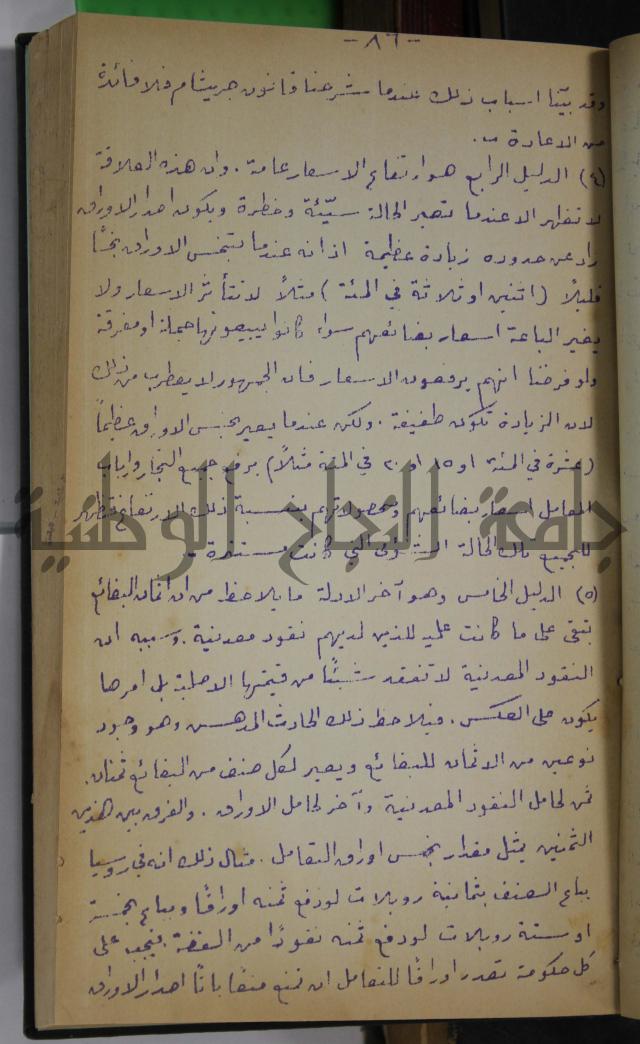 -٨٦-
وقد بيّنا اسباب ذلك عندما شرحنا قانون جريشام فلا فائدة
من الاعادة .
(٤) الدليل الرابع هو ارتفاع الاسعار عامة . وان هذه العلاقة
لا تظهر الا عندما تصير الحالة سيّئة وخطرة ويكون اصدار الاوراق
زاد عن حدوده زيادة عظيمة اذ انه عندما تبخس الاوراق بخسًا
قليلاً (اثنين او ثلاثة في المئة) مثلاً لا تتأثر الاسعار ولا
يغير الباعة اسعار بضائعهم سواء كانوا يبيعونها جملة او مفرقة
ولو فرضنا انهم يرفعون الاسعار فان الجمهور لا يضطرب من ذلك
لان الزيادة تكون طفيفة . ولكن عندما يصير بخس الاوراق عظيماً
(عشرة في المئة او ١٥ او ٢٠ في المئة مثلاً) يرفع جميع التجار وارباب
المعامل اسعار بضائعهم ومحصولاتهم بنسبة ذلك الارتفاع فتظهر
للجميع تلك الحالة التي كانت مستترة .
(٥) الدليل الخامس وهو آخر الادلة ما يلاحظ من ان اثمان البضائع
تبقى على ما كانت عليه للذين لديهم نقود معدنية . وسببه ان
النقود المعدنية لا تفقد شيئًا من قيمتها الاصلية بل امرها
يكون على العكس . فيلاحظ ذلك الحادث المدهش وهو وجود
نوعين من الاثمان للبضائع ويصير لكل صنف من البضائع ثمنان .
ثمن لحامل النقود المعدنية وآخر لحامل الاوراق . والفرق بين هذين
الثمنين يمثل مقدار بخس اوراق التعامل . مثال ذلك انه في روسيا
يباع الصنف بثمانية روبلات لو دفع ثمنه اوراقًا ويباع بخمسة
او ستة روبلات لو دفع ثمنه نقودًا من الفضة . فيجب على
كل حكومة تصدر اوراقًا للتعامل ان تمنع منعًا باتًا اصدار الاوراق
جامعة النجاح الوطنية